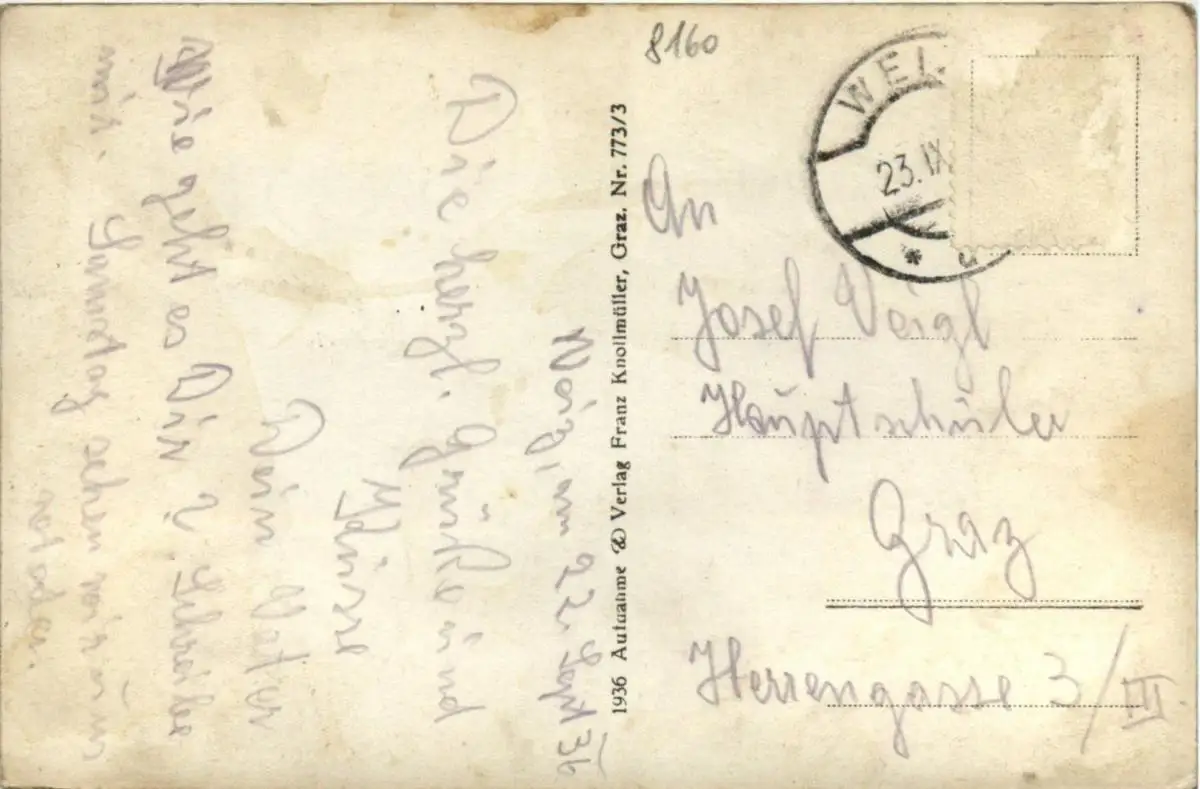 8160
WEI
23.IX
* a
An
Josef Veigl
Hauptschüler
Graz
Herrengasse 3/III
1936 Aufnahme & Verlag Franz Knollmüller, Graz. Nr. 773/3
am 22. Sept 36
Die herzl. Grüße und
Küsse
Dein Peter
Wie geht es Dir? Schreibe
mir. Samstag schon wir